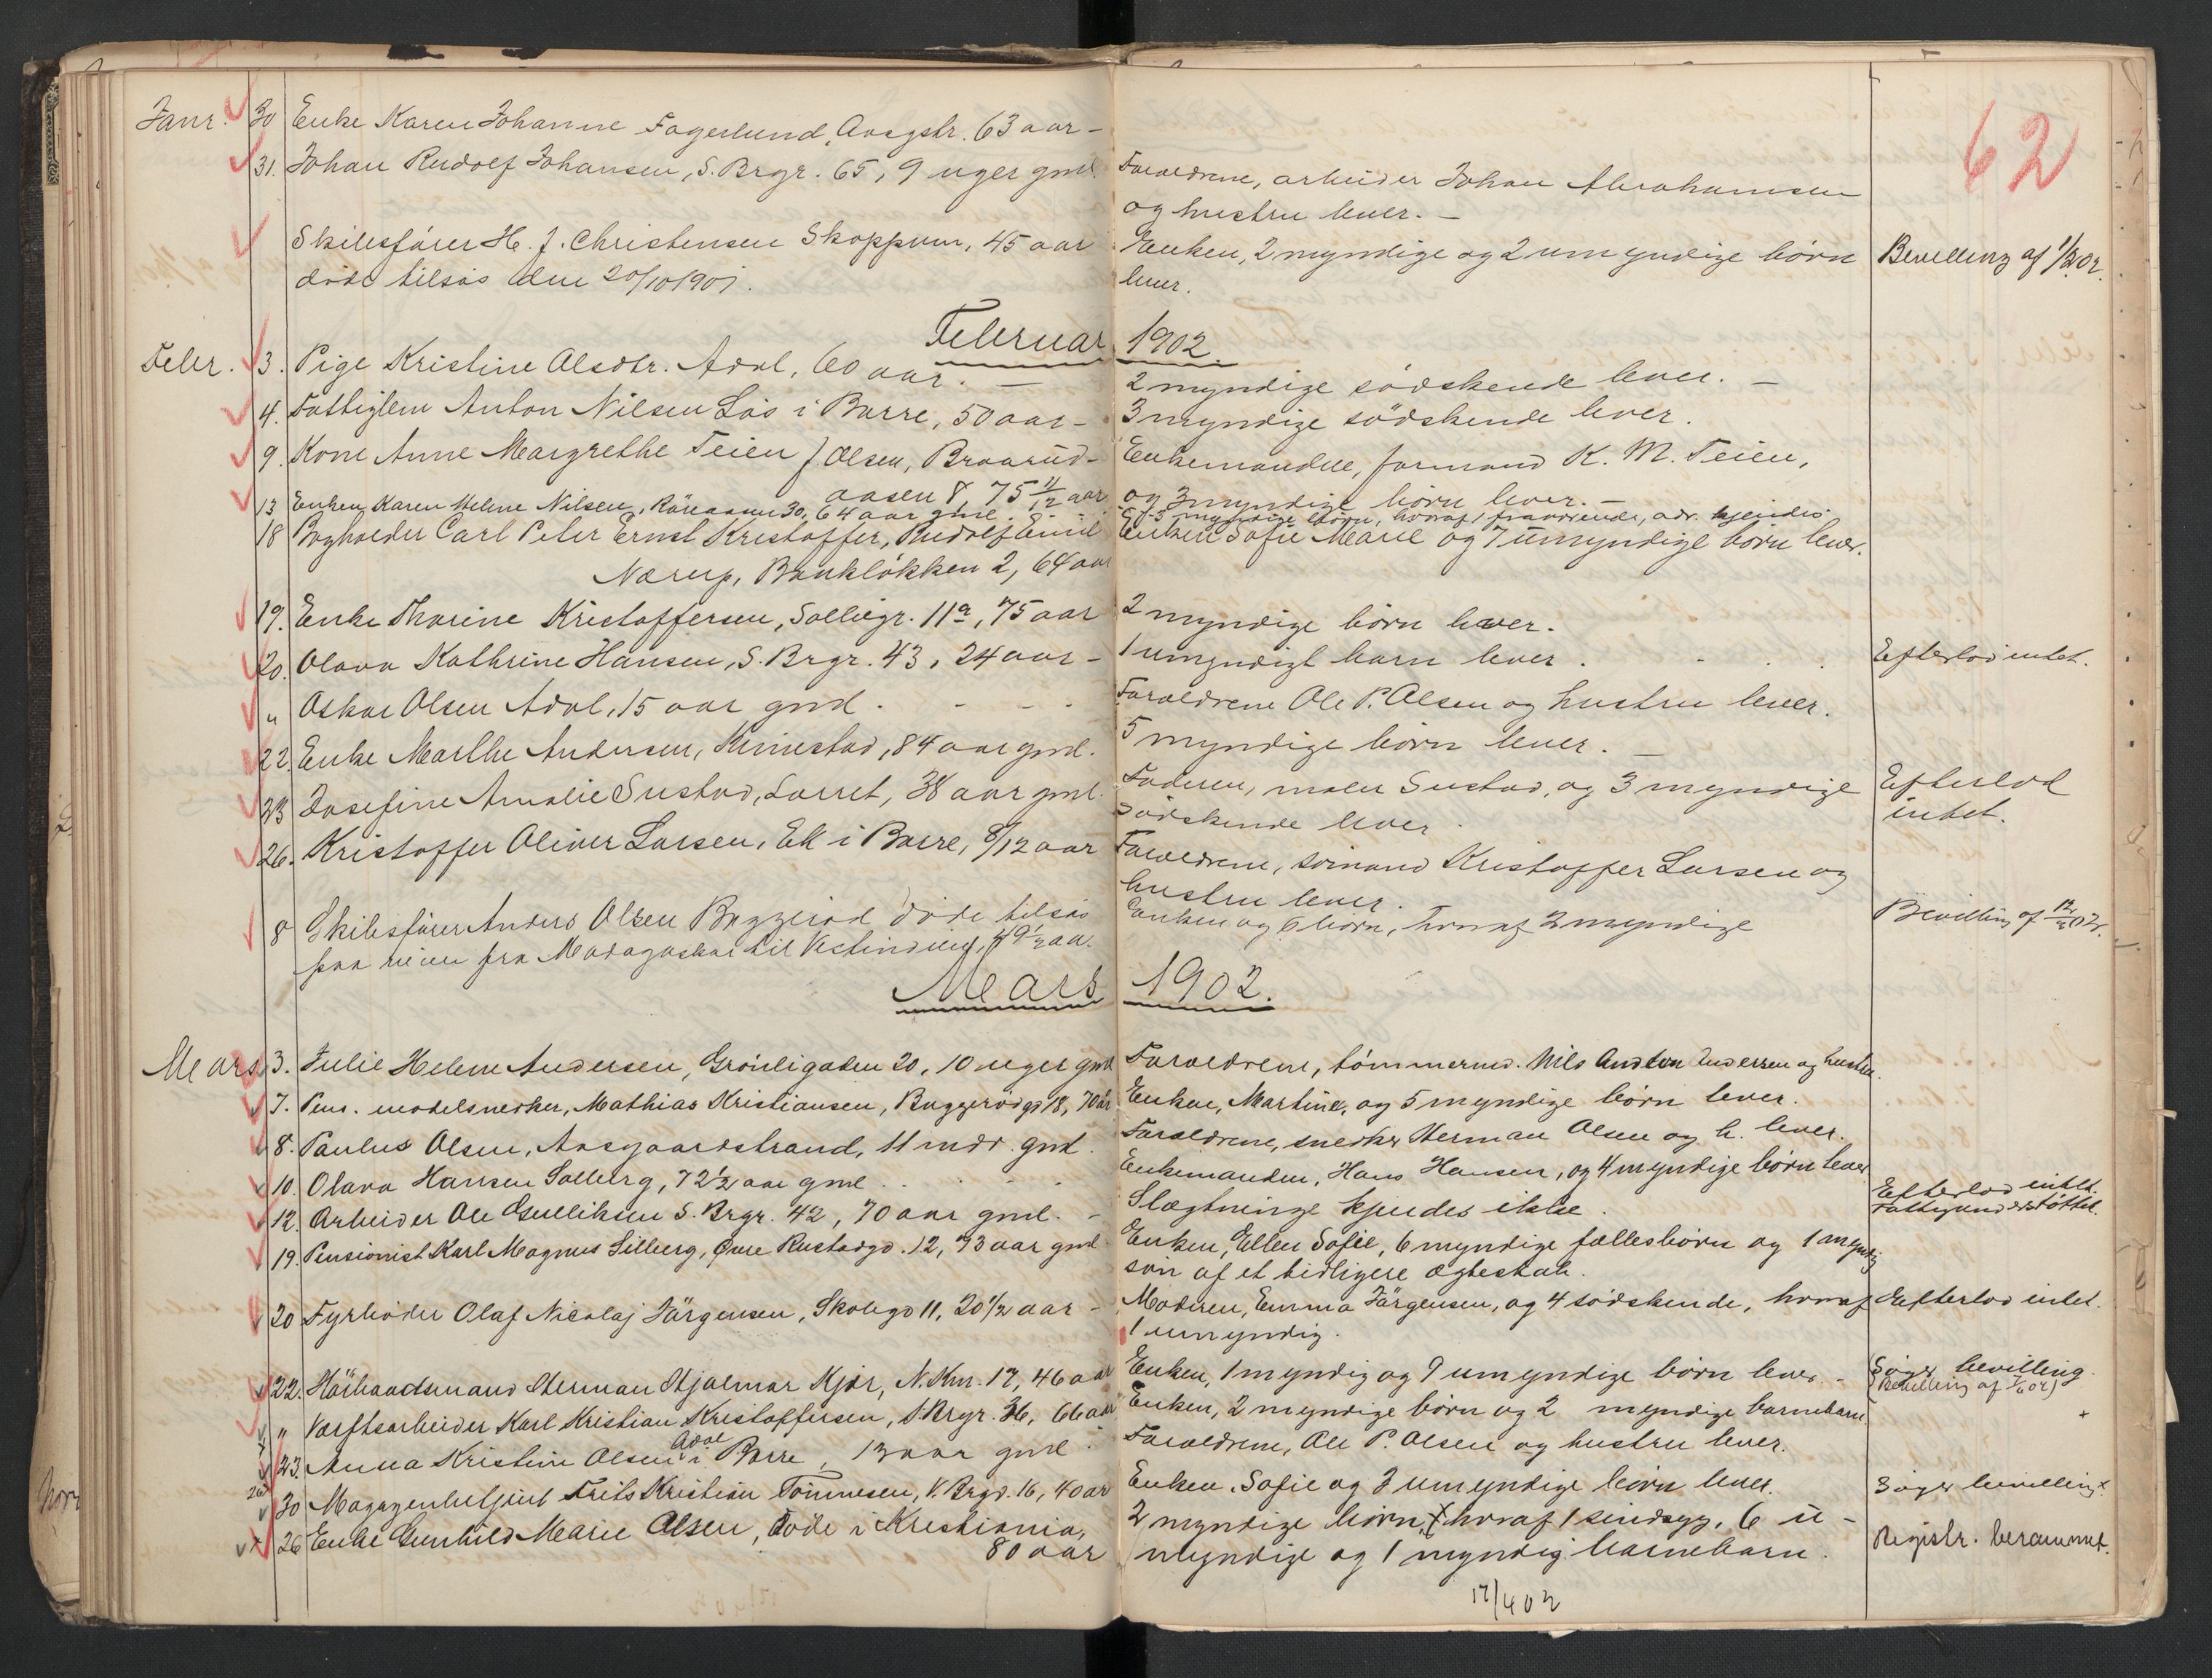 62
Janr. 30 Enke Karen Johanne Fagerlund, Aasgstr. 63 aar -
31. Johan Rudolf Johansen, S. Brgr. 65, 9 uger gml.
Forældrene, arbeider Johan Abrahamsen
og hustru lever. -
Skibsfører H. J. Christensen Skoppum, 45 aar
døde tilsøs den 20/10 1901.
Enken, 2 myndige og 2 umyndige børn
lever.
Bevilling af 1/2 02.
Februar 1902.
Febr. 3. Pige Kristine Olsdtr. Adal, 60 aar. -
2 myndige sødskende lever. -
4. Fattiglem Anton Nilsen Løs i Borre, 50 aar -
3 myndige sødskende lever.
9. Kone Anne Margrethe Teien f. Olsen, Braarud-
aasen 8, 75 11/12 aar
Enkemanden, formand K. M. Teien,
og 3 myndige børn lever. -
13 Enken Karen Helene Nilsen, Röreaasen 30, 64 aar gml.
5 myndige børn, hvoraf 1 fraværende, adr. kjendes.
18 Bogholder Carl Peter Ernst Kristoffer, Rudolf Emil
Nærup, Bankløkken 2, 64 aar
Enken Sofie Marie og 7 umyndige børn lever.
19. Enke Thorine Kristoffersen, Solliegr. 11a, 75 aar
2 myndige børn lever.
20. Olava Kathrine Hansen, S. Brgr. 43, 24 aar -
1 umyndigt barn lever.
Efterlod intet.
" Oskar Olsen Adal, 15 aar gml.
Forældrene Ole P. Olsen og hustru lever.
22. Enke Marthe Andersen, Kinnestad, 84 aar gml.
5 myndige børn lever. -
23 Josefine Amalie Sustad, Lorret, 38 aar gml.
Faderen, maler Sustad, og 3 myndige
sødskende lever.
Efterlod
intet.
26. Kristoffer Oliver Larsen, Ek i Borre, 8/12 aar
Forældrene, sømand Kristoffer Larsen og
hustru lever.
8 Skibsfører Anders Olsen Baggerød døde tilsøs
paa reisen fra Madagaskar til Vestindien, 49 1/2 aar.
Enken og 6 børn, hvoraf 2 myndige
Bevilling af 12/3 02.
Mars 1902.
Mars 3. Julie Helene Andersen, Grönligaden 20, 10 uger gml
Forældrene, tømmermd. Nils Anton Andersen og hustru.
7. Pens. modelsnedker, Mathias Kristiansen, Baggerødgd 18, 70 år
Enken, Martine, og 5 myndige børn lever.
8. Paulus Olsen, Aasgaardstrand, 11 mdr. gml.
Forældrene, snedker Herman Olsen og h. lever.
10. Olava Hansen Solberg, 72 1/2 aar gml.
Enkemanden, Hans Hansen, og 4 myndige børn lever
12. Arbeider Ole Gulliksen S. Brgr. 42, 70 aar gml. -
Slægtninge kjendes ikke.
Efterlod intet.
Fattigunderstöttet.
19. Pensionist Karl Magnus Silberg, Øvre Rustadgd. 12, 73 aar gml
Enken, Ellen Sofie, 6 myndige fællesbørn og 1 myndig
søn af et tidligere ægteskab.
20 Fyrbøder Olaf Nicolaj Jörgensen, Skolegd 11, 20 1/2 aar -
Moderen, Emma Jörgensen, og 4 sødskende, hvoraf
1 umyndig.
Efterlod intet.
22. Hörhandsmand Herman Hjalmar Kjær, N. Km. 17, 46 aar
Enken, 1 myndig og 9 umyndige børn lever. -
Søger bevilling.
(Bevilling af 7/6 02)
" Værftsarbeider Karl Kristian Kristoffersen, S. Brgr. 36, 66 aar
Enken, 2 myndige børn og 2 myndige barnebarn
23. Anna Kristine Olsen Adal i Borre, 13 aar gml
Forældrene, Ole P. Olsen og hustru lever.
30 Magazenbetjent Frits Kristian Tönnesen, V. Brgd. 16, 40 aar
Enken Sofie og 3 umyndige børn lever.
Søger bevilling.
26 Enke Gunhild Marie Olsen, døde i Kristiania,
80 aar
2 myndige børn, hvoraf 1 sindsyg, 6 u-
myndige og 1 myndig barnebarn.
Registr. berammet.
17/4 02